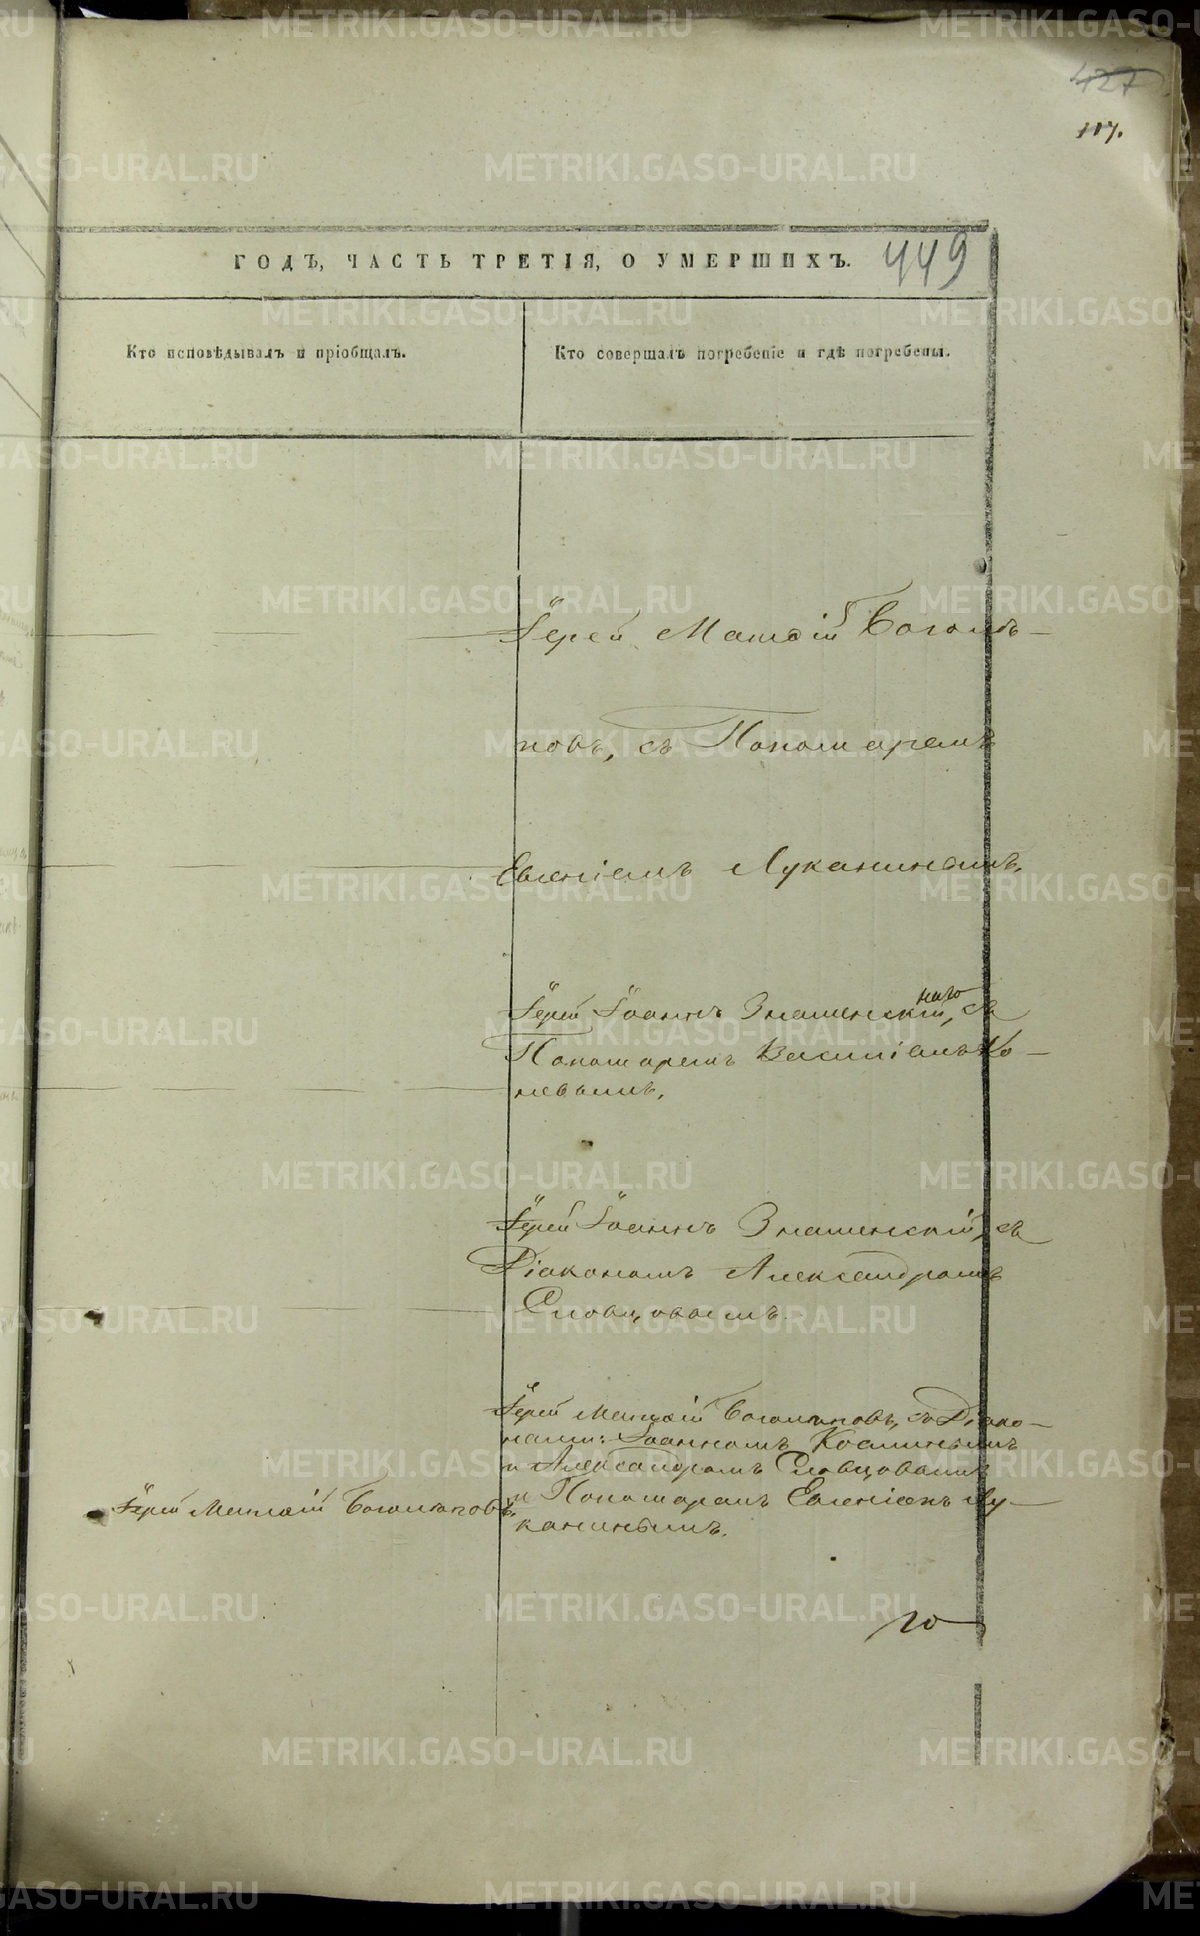 427
117.
449
ГОДЪ, ЧАСТЬ ТРЕТІЯ, О УМЕРШИХЪ.
Кто исповѣдывалъ и пріобщалъ.
Кто совершалъ погребеніе и гдѣ погребены.
Іерей Матѳій Боголѣ-
повъ, съ Пономаремъ
Евгеніемъ Луканинымъ,
Іерей Іоаннъ Знаменскій, съ
Пономаремъ Василіемъ Ко-
невымъ,
Іерей Іоаннъ Знаменскій, съ
Діакономъ Александромъ
Словцовымъ.
Іерей Матѳій Боголѣповъ, съ Діако-
нами: Іоанномъ Косминымъ
и Александромъ Словцовымъ
и Пономаремъ Евгеніемъ Лу-
канинымъ.
Іерей Матѳій Боголѣповъ.
METRIKI.GASO-URAL.RU